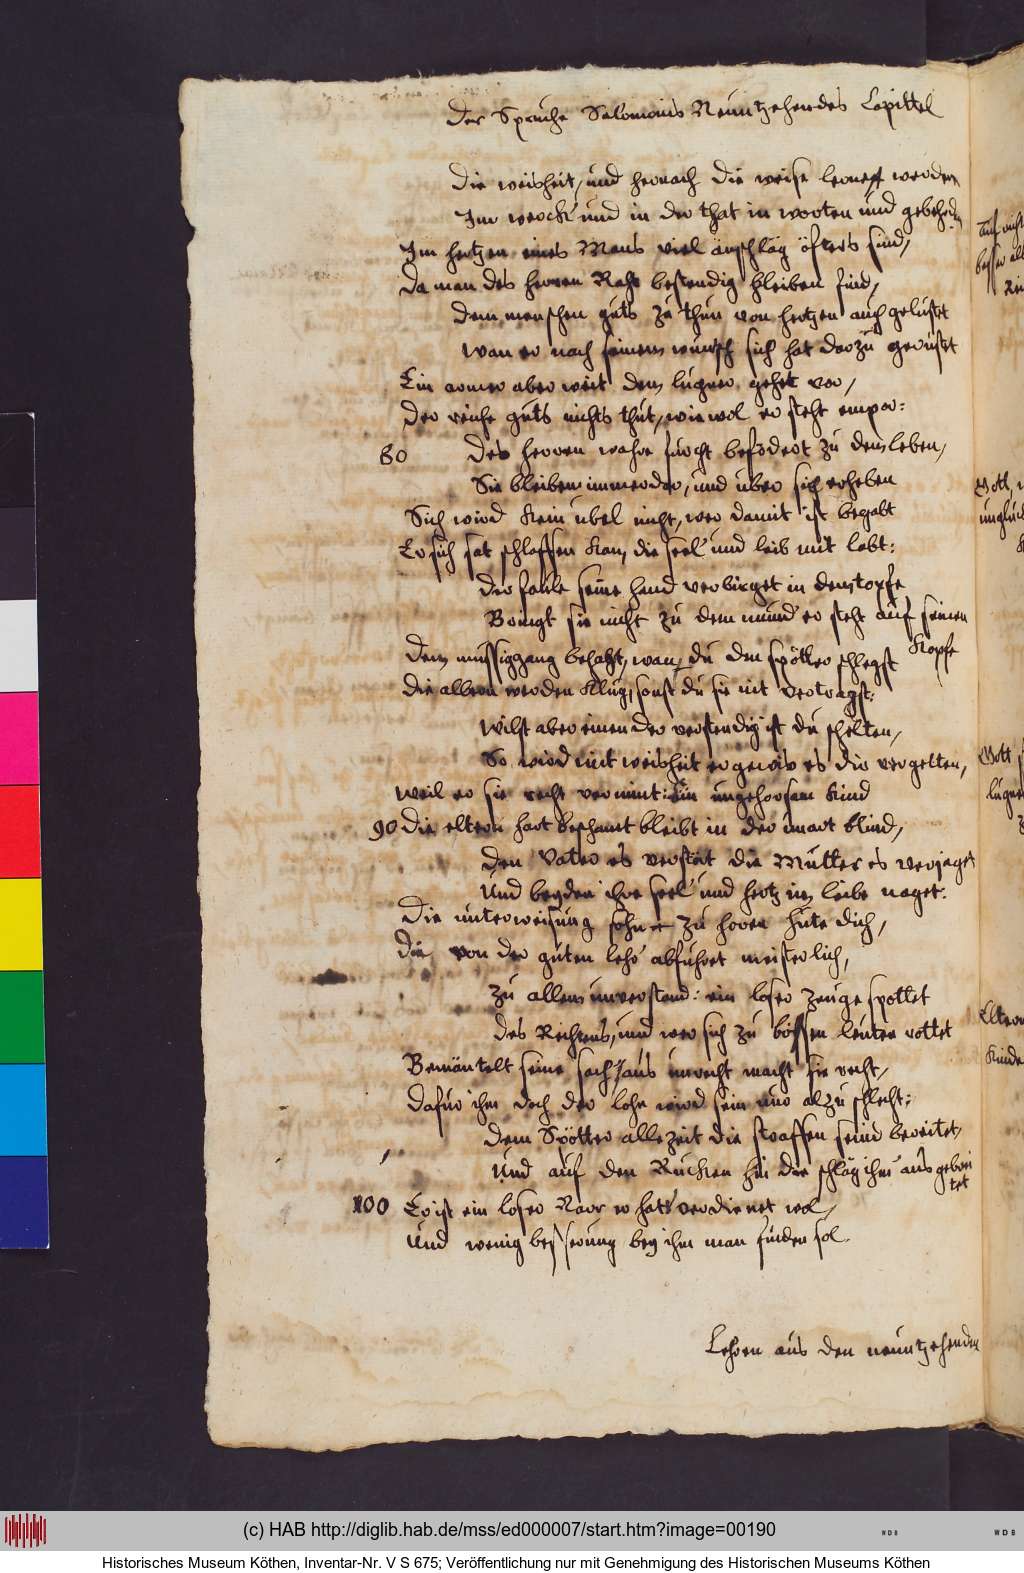 Der Sprüche Salomonis Neuntzehendes Capittel
Die weisheit, und hernach die weise lernest werden
Im werck und in der that in worten und gebehrden
Im hertzen eines Mans viel anschläg öfters sind,
Da man des herren Raht bestendig bleiben find,
Dem menschen guts zu thun von hertzen auch gelüstet
Wan er nach seinem wunsch sich hat darzu gerüstet
Ein armer aber weit dem lugner gehet vor,
Der reiche guts nichts thut, wie wol er steht empor:
80 Des herren wahre furcht befodert zu dem leben,
Sie bleiben immerdar, und uber sich erheben
Sich wird kein ubel nicht, wer damit ist begabt
Er sich sat schlaffen kan, die seel und leib mit labt:
Der faule seine hand verbirget in dem topfe
Bringt sie nicht zu dem mund er steht auf seinem
Kopfe
Dem mussiggang behaft, wan du den spötter schlegst
Die albern werden klug, sonst du sie nit vertragst:
Wilst aber einen der verstendig ist du schelten,
So wird mit weisheit er gewis es dir vergelten,
Weil er sie recht vernimt: Ein ungehorsam kind
90 Die eltern hart beschamt bleibt in der mart blind,
Den Vater es verstört die Mutter es verjaget
Und beyden ihre seel und hertz im leibe naget.
Die unterweisung sohn zu horen hute dich,
Die von der guten lehr abfuhret meisterlich,
Zu allem unverstand: ein loser zeuge spottet
Des Rechtens, und wer sich zu bössen leuten rottet
Bemäntelt seine sach, aus unrecht macht sie recht,
Dafur ihm doch der lohn wird sein nur alzu schlecht:
Dem Spötter allezeit die straffen seind bereitet,
Und auf den Rucken hin die schläg ihm ausgebrei
tet
100 Er ist ein loser Narr er hatts verdienet wol,
Und wenig besserung bey ihm man finden sol.
Lehren aus den neuntzehenden
(c) HAB http://diglib.hab.de/mss/ed000007/start.htm?image=00190
WDB
WDB
Historisches Museum Köthen, Inventar-Nr. V S 675; Veröffentlichung nur mit Genehmigung des Historischen Museums Köthen